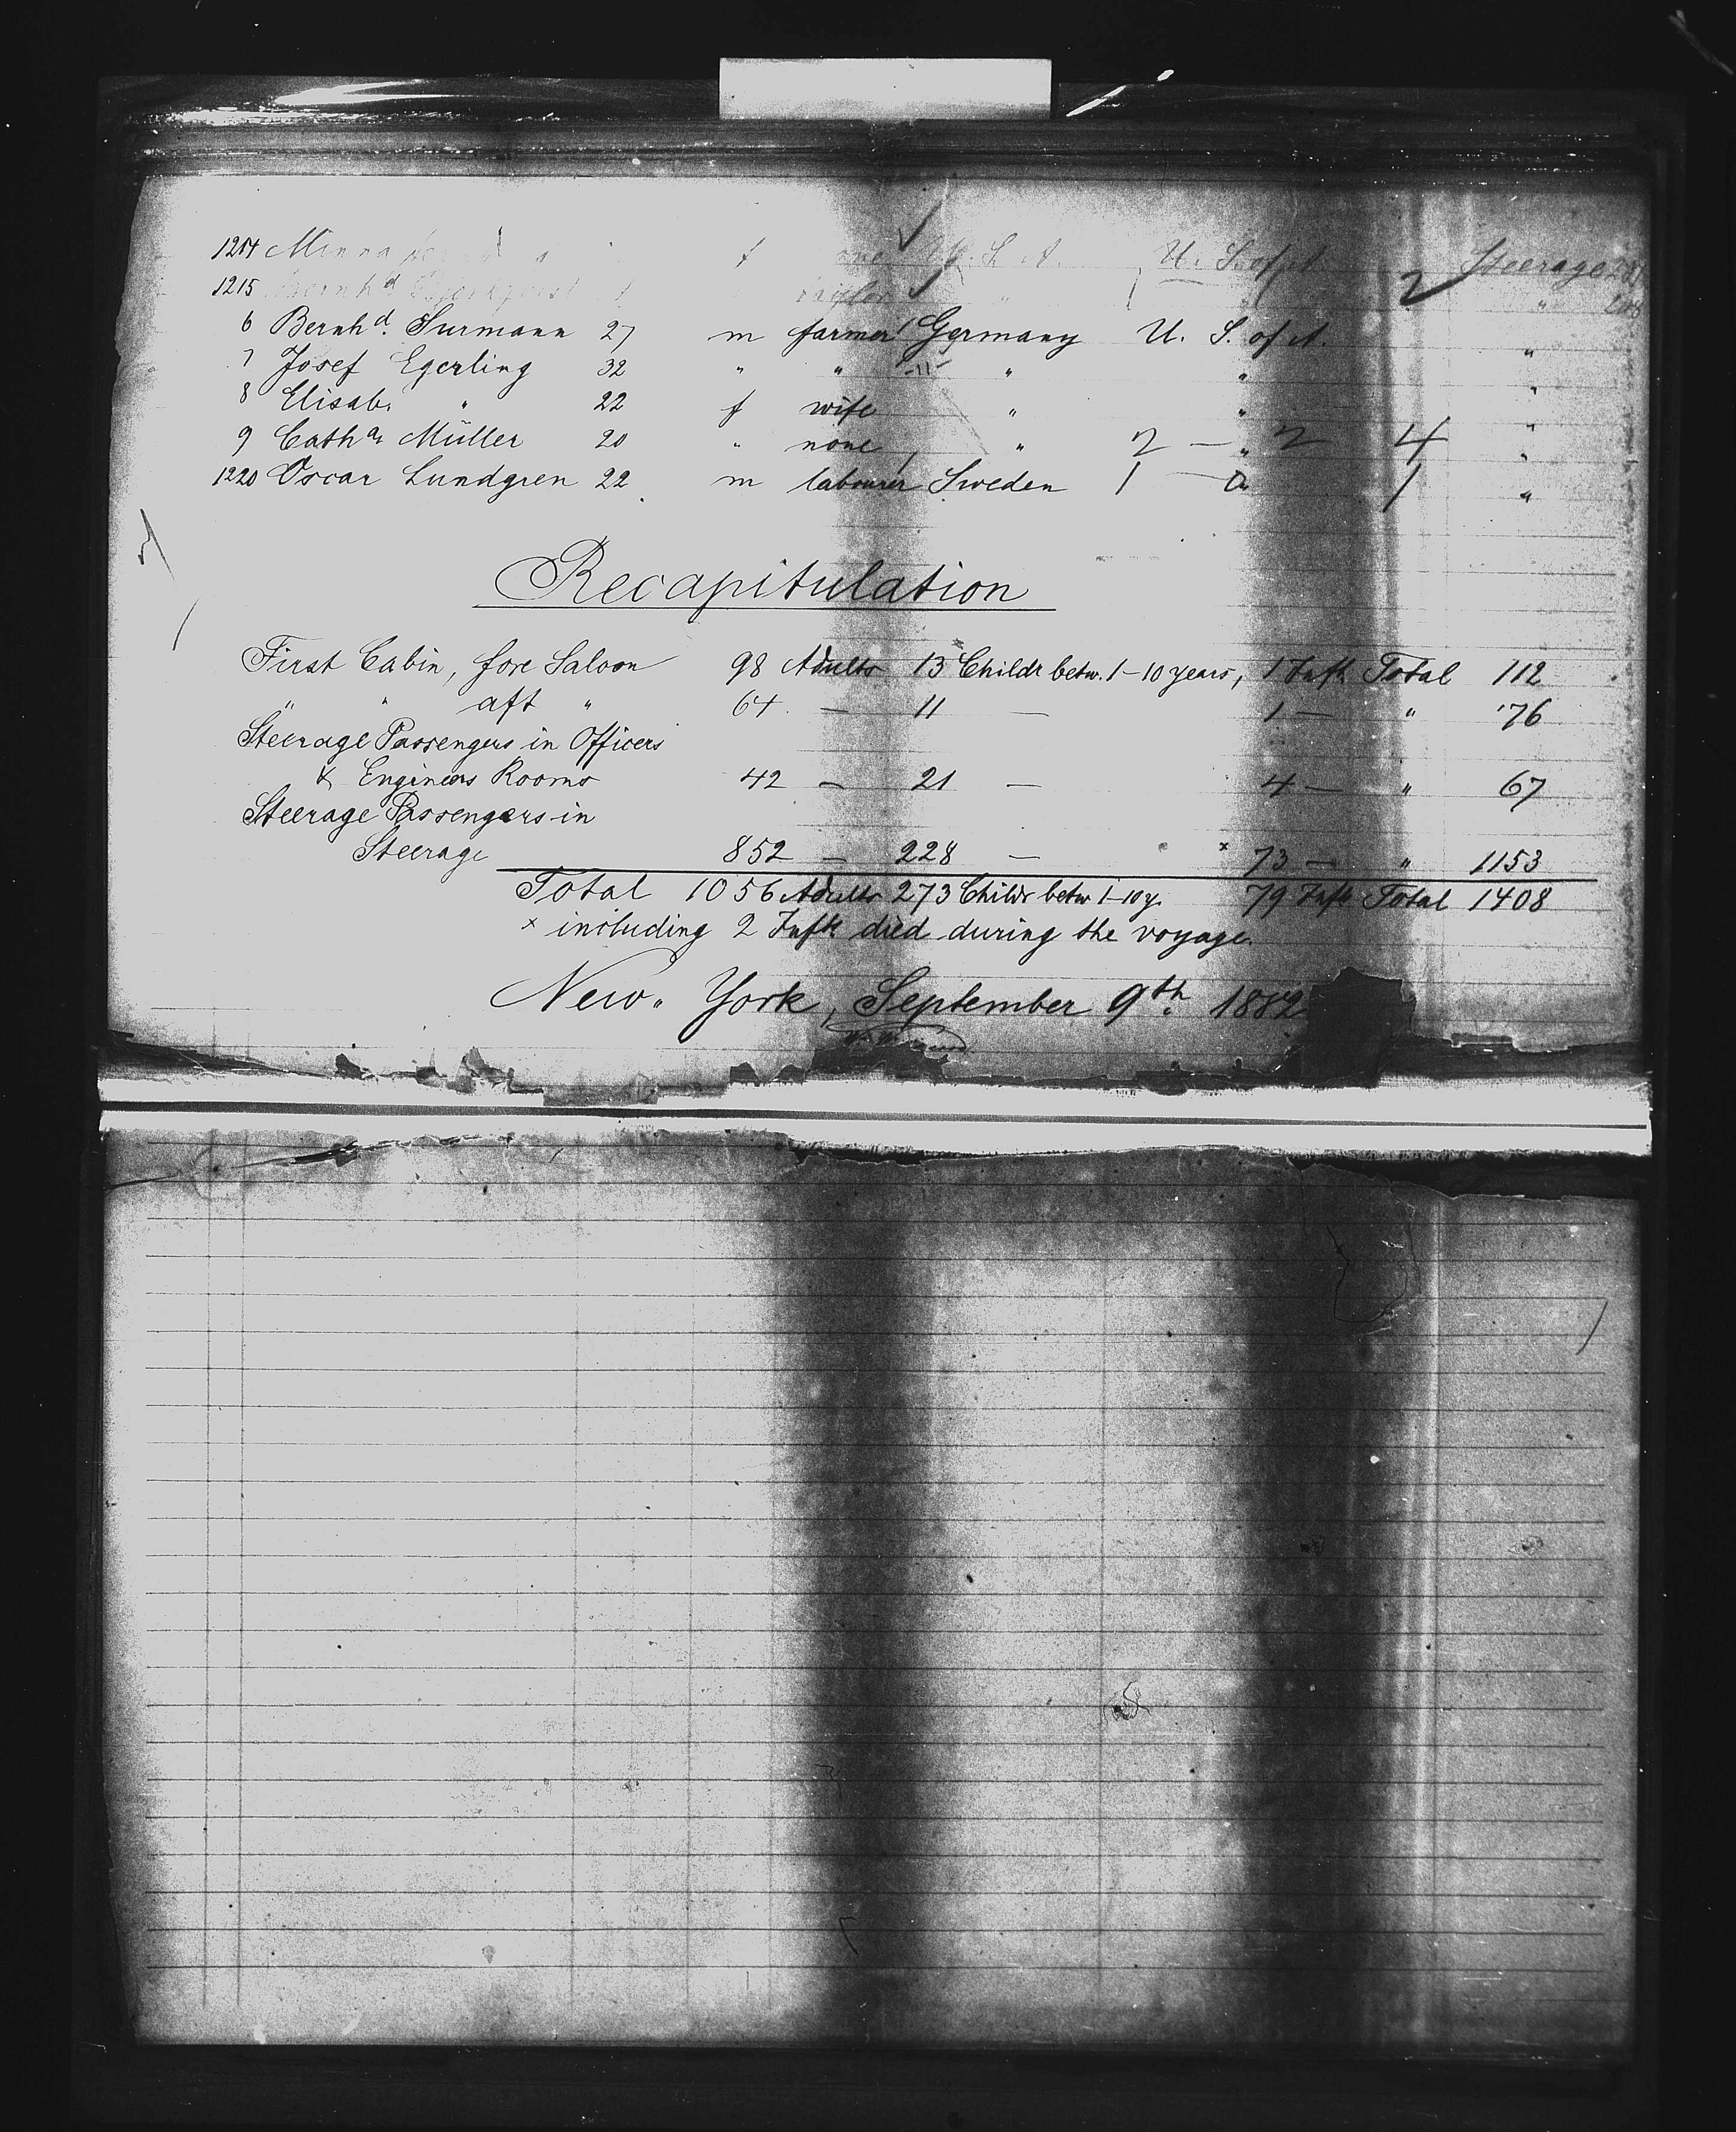 1214 Minna f U. S. A. U. S. of A. Steerage
1215 " " 2 "
6 Bernhd. Surmann 27 m farmer Germany U. S. of A. "
7 Josef Egerling 32 " " -11- " " "
8 Elisab. " 22 f wife " " "
9 Catha Müller 20 " none " 2 — " 2 4 "
1220 Oscar Lundgren 22 m labourer Sweden 1 — 1 "
Recapitulation
First Cabin, fore Saloon 98 Adults 13 Childr betw. 1-10 years, 1 Inft Total 112
" " aft " 64 — 11 — 1 — " 76
Steerage Passengers in Officers
& Engineers Rooms 42 — 21 — 4 — " 67
Steerage Passengers in
Steerage 852 — 228 — x 73 — " 1153
Total 1056 Adults 273 Childr betw 1-10 y. 79 Infts Total 1408
x including 2 Infts died during the voyage.
New-York, September 9th. 1882